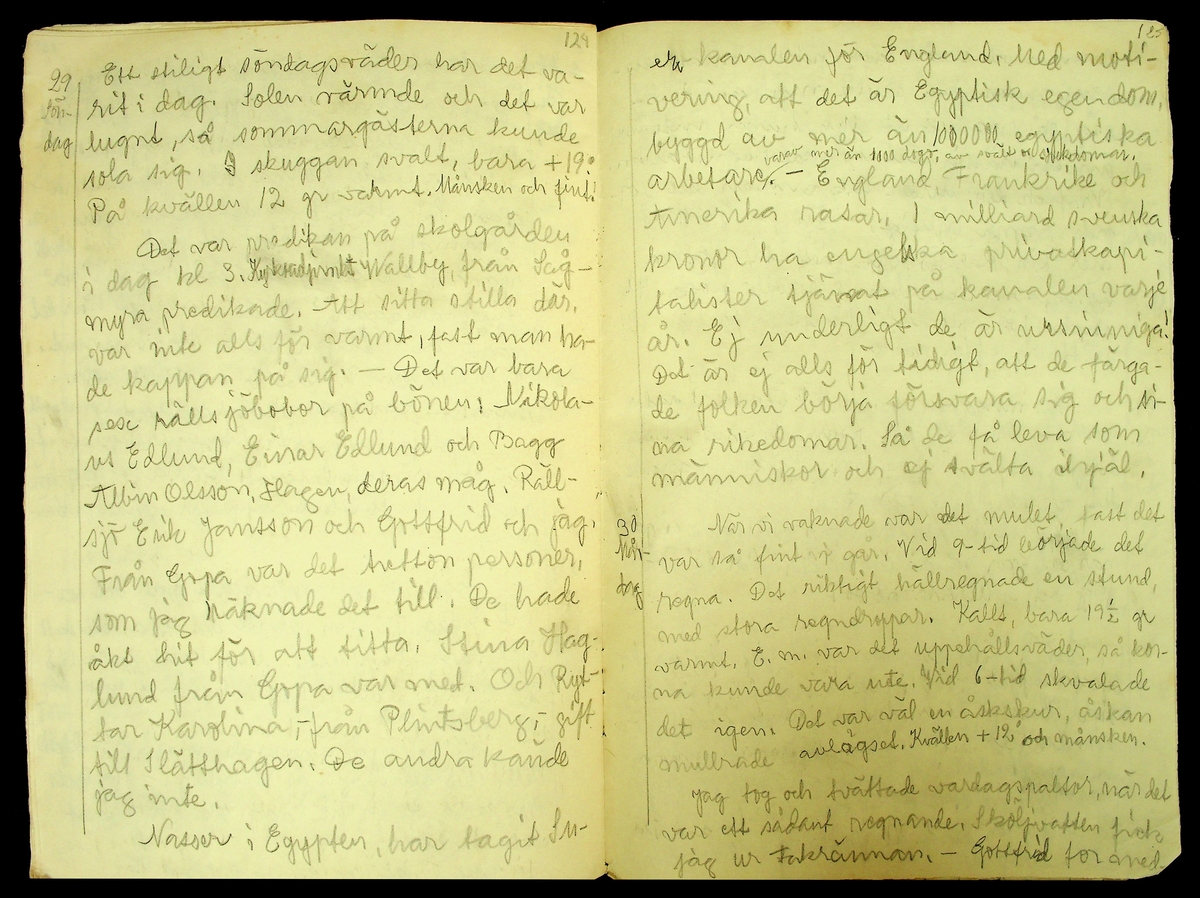 124
29
Sön-
dag
Ett stiligt söndagsväder har det va-
rit i dag. Solen värmde och det var
lugnt, så sommargästerna kunde
sola sig. I skuggan svalt, bara +19°
På kvällen 12 gr varmt. Månsken och fint!
Det var predikan på skolgården
i dag kl 3. Wallby, från Såg-
myra predikade. Att sitta stilla där,
var inte alls för varmt, fast man ha-
de kappan på sig. — Det var bara
sex rällsjöbobor på bönen: Nikola-
us Edlund, Einar Edlund och Bagg
Albin Olsson, Hagen, deras måg. Räll-
sjö Erik Jansson och Gottfrid och jag.
Från Gopa var det tretton personer,
som jag räknade det till. De hade
åkt hit för att titta. Stina Hag-
lund från Gopa var med. Och Ryt-
tar Karolina, från Plintsberg, gift
till Slätthagen. De andra kände
jag inte.
Nasser i Egypten, har tagit Su-
125
ez-kanalen för England. Med moti-
vering, att det är Egyptisk egendom,
byggd av mer än egyptiska
varav mer än 1000 dogo, av svält o. sjukdomar.
arbetare. — England, Frankrike och
Amerika rasar. 1 milliard svenska
kronor ha engelska privatkapi-
talister tjänat på kanalen varje
år. Ej underligt de är ursinniga!
Det är ej alls för tidigt, att de färga-
de folken börja försvara sig och si-
na rikedomar. Så de få leva som
människor och ej svälta ihjäl.
30
Mån-
dag
När vi vaknade var det mulet, fast det
var så fint i går. Vid 9-tid började det
regna. Det riktigt hällregnade en stund,
med stora regndroppar. Kallt, bara 19½ gr
varmt. E. m. var det uppehållsväder, så kor-
na kunde vara ute. Vid 6-tid skvalade
det igen. Det var väl en åskskur, åskan
mullrade avlägset. Kvällen +12° och månsken.
Jag tog och tvättade vardagspaltor, när det
var ett sådant regnande. Sköljvatten fick
jag ur takrännan. — Gottfrid for med